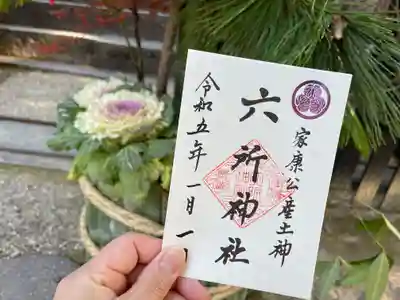 家康公産土神
六所神社
令和五年一月一日